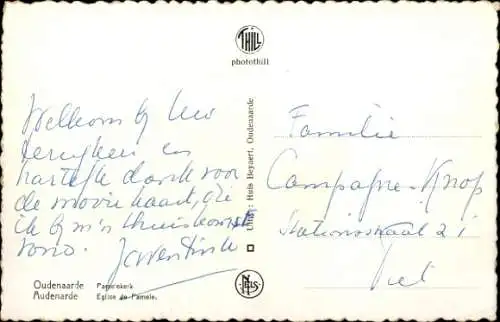 THILL
photothill
Welkom bij Uw
terugkeer en
hartelijk dank voor
de mooie kaart, die
ik bij m'n thuiskomst
vond.
Uitg.: Huis Beyaert, Oudenaarde
Familie
Campagne-Knop
Stationsstraat 21
Tiel
Oudenaarde Pamelekerk
Audenarde Eglise de Pamele.
NELS